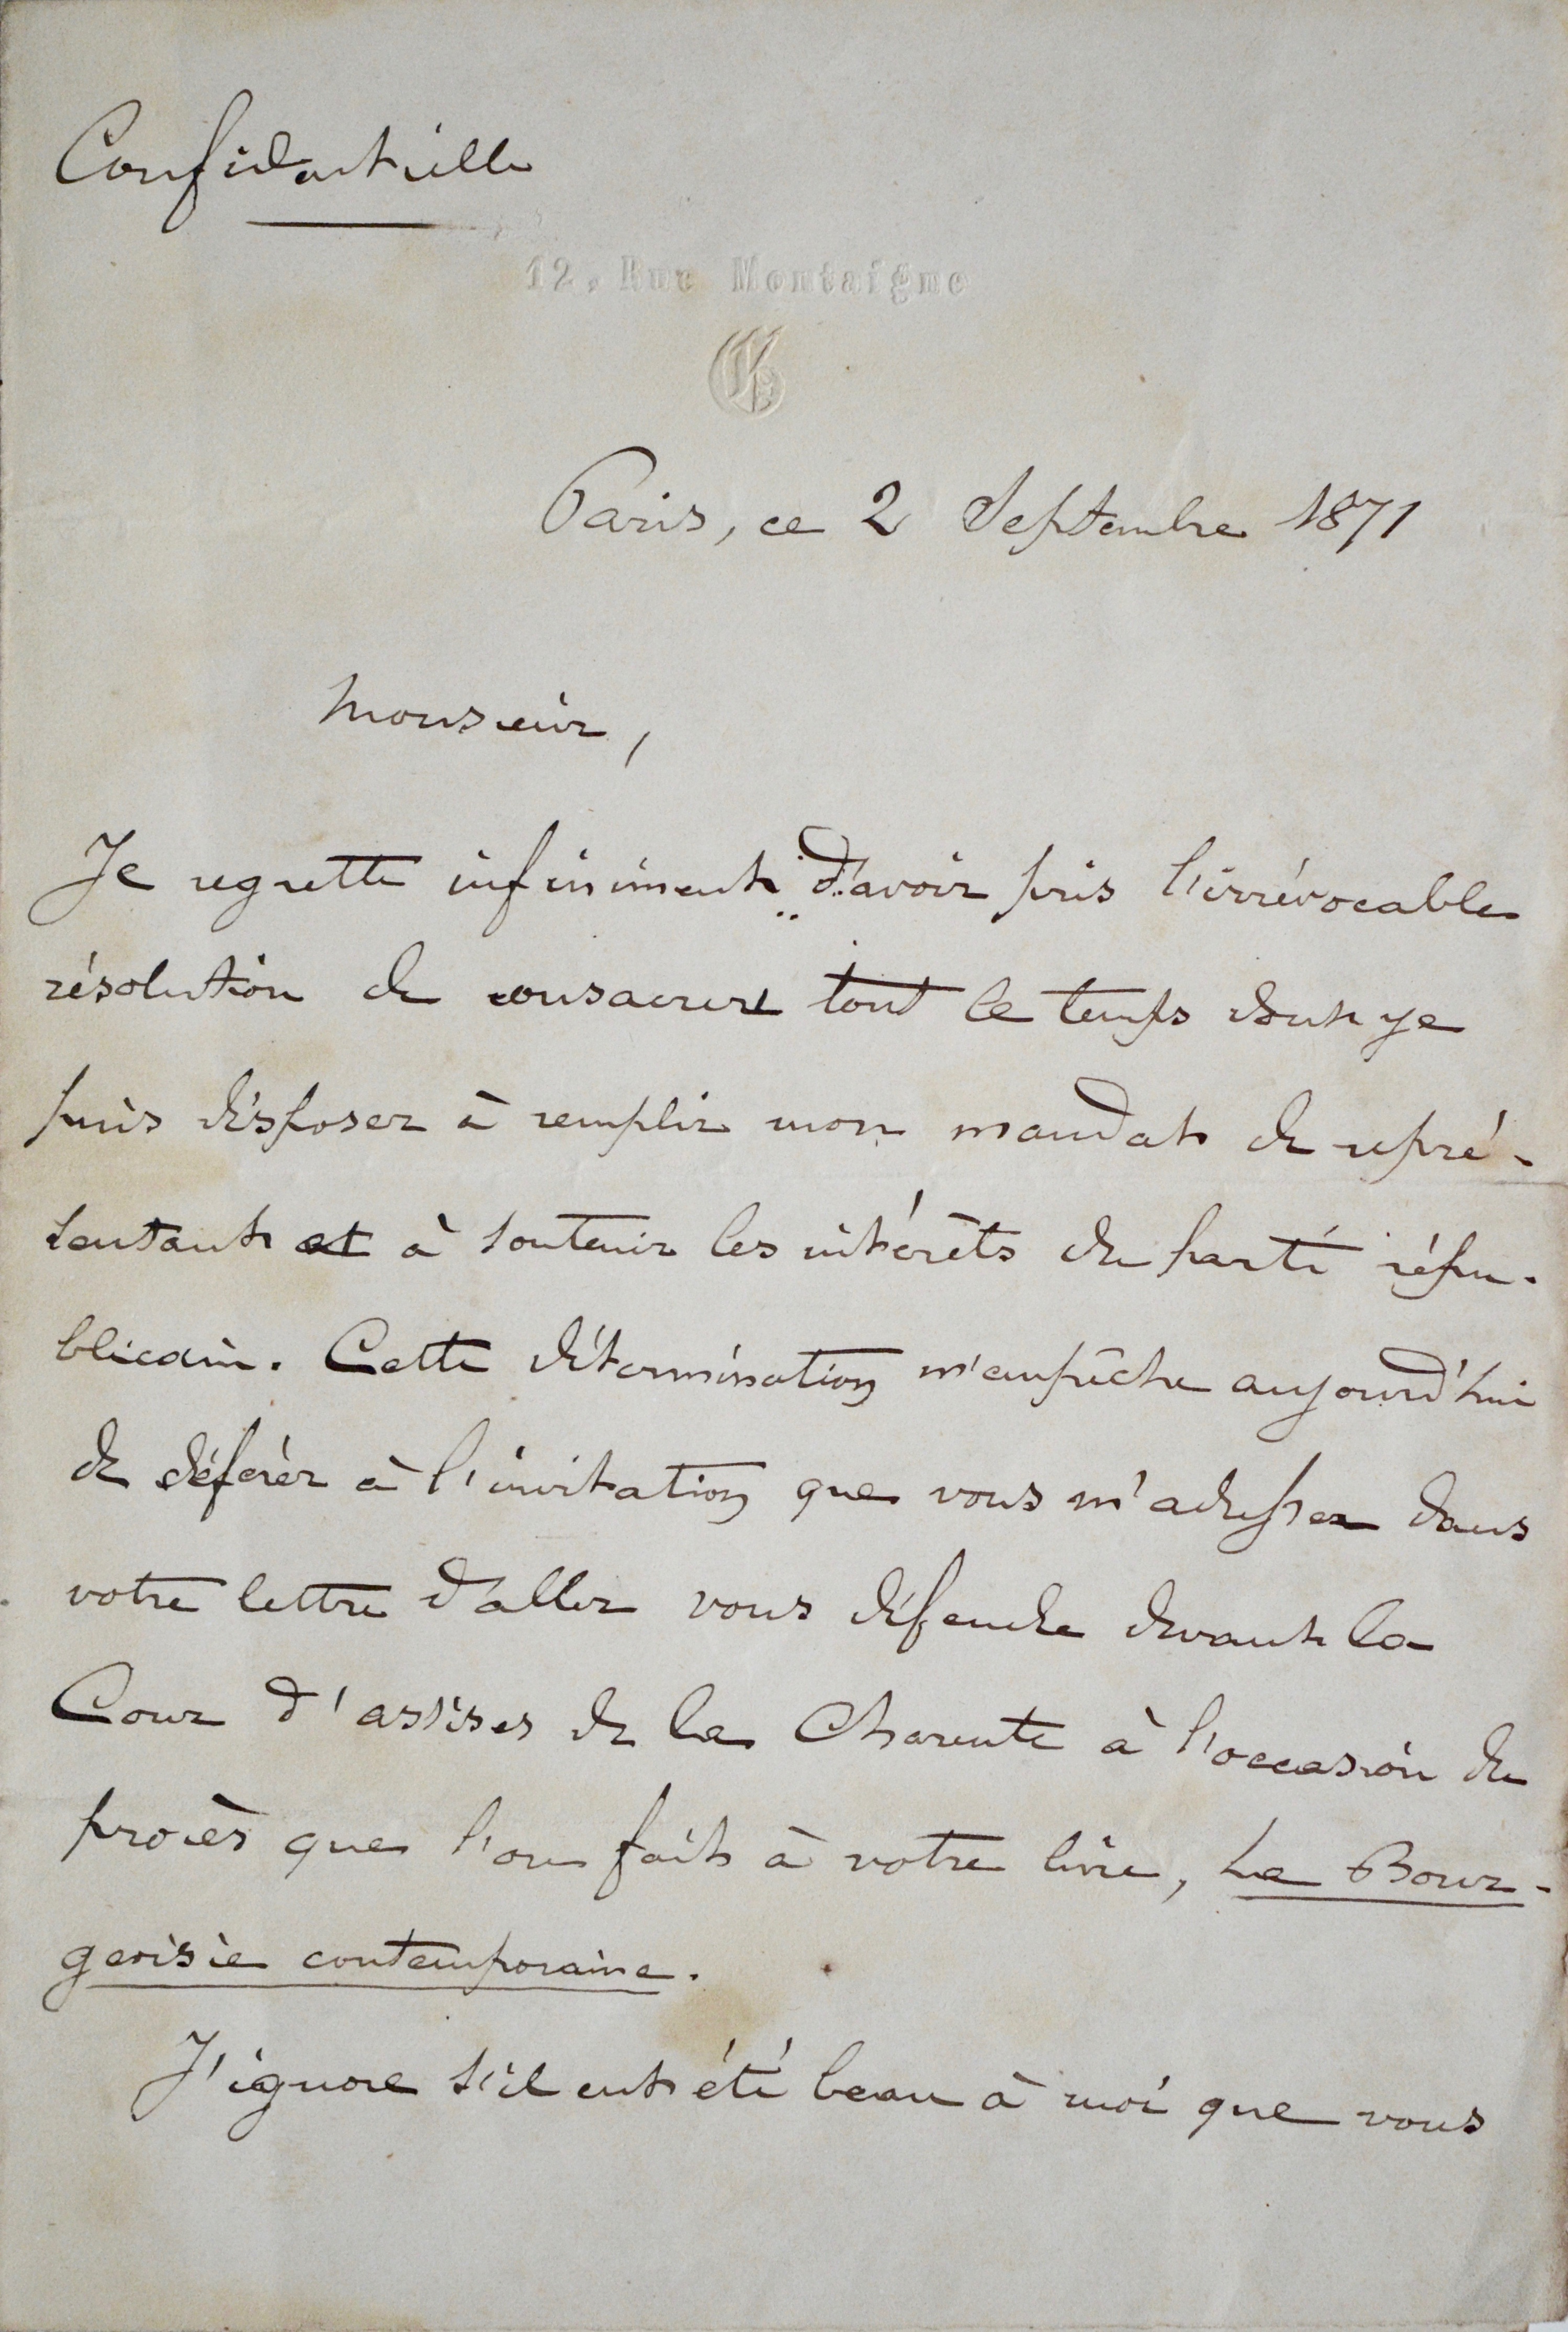 Confidentielle
12, Rue Montaigne
Paris, ce 2 Septembre 1871
Monsieur,
Je regrette infiniment d'avoir pris l'irrévocable
résolution de consacrer tout le temps dont je
puis disposer à remplir mon mandat de repré-
sentant et à soutenir les intérêts du parti répu-
blicain. Cette détermination m'empêche aujourd'hui
de déférer à l'invitation que vous m'adressez dans
votre lettre d'aller vous défendre devant la
Cour d'assises de la Charente à l'occasion du
procès que l'on fait à votre livre, La Bour-
geoisie contemporaine.
J'ignore s'il eut été beau à moi que vous